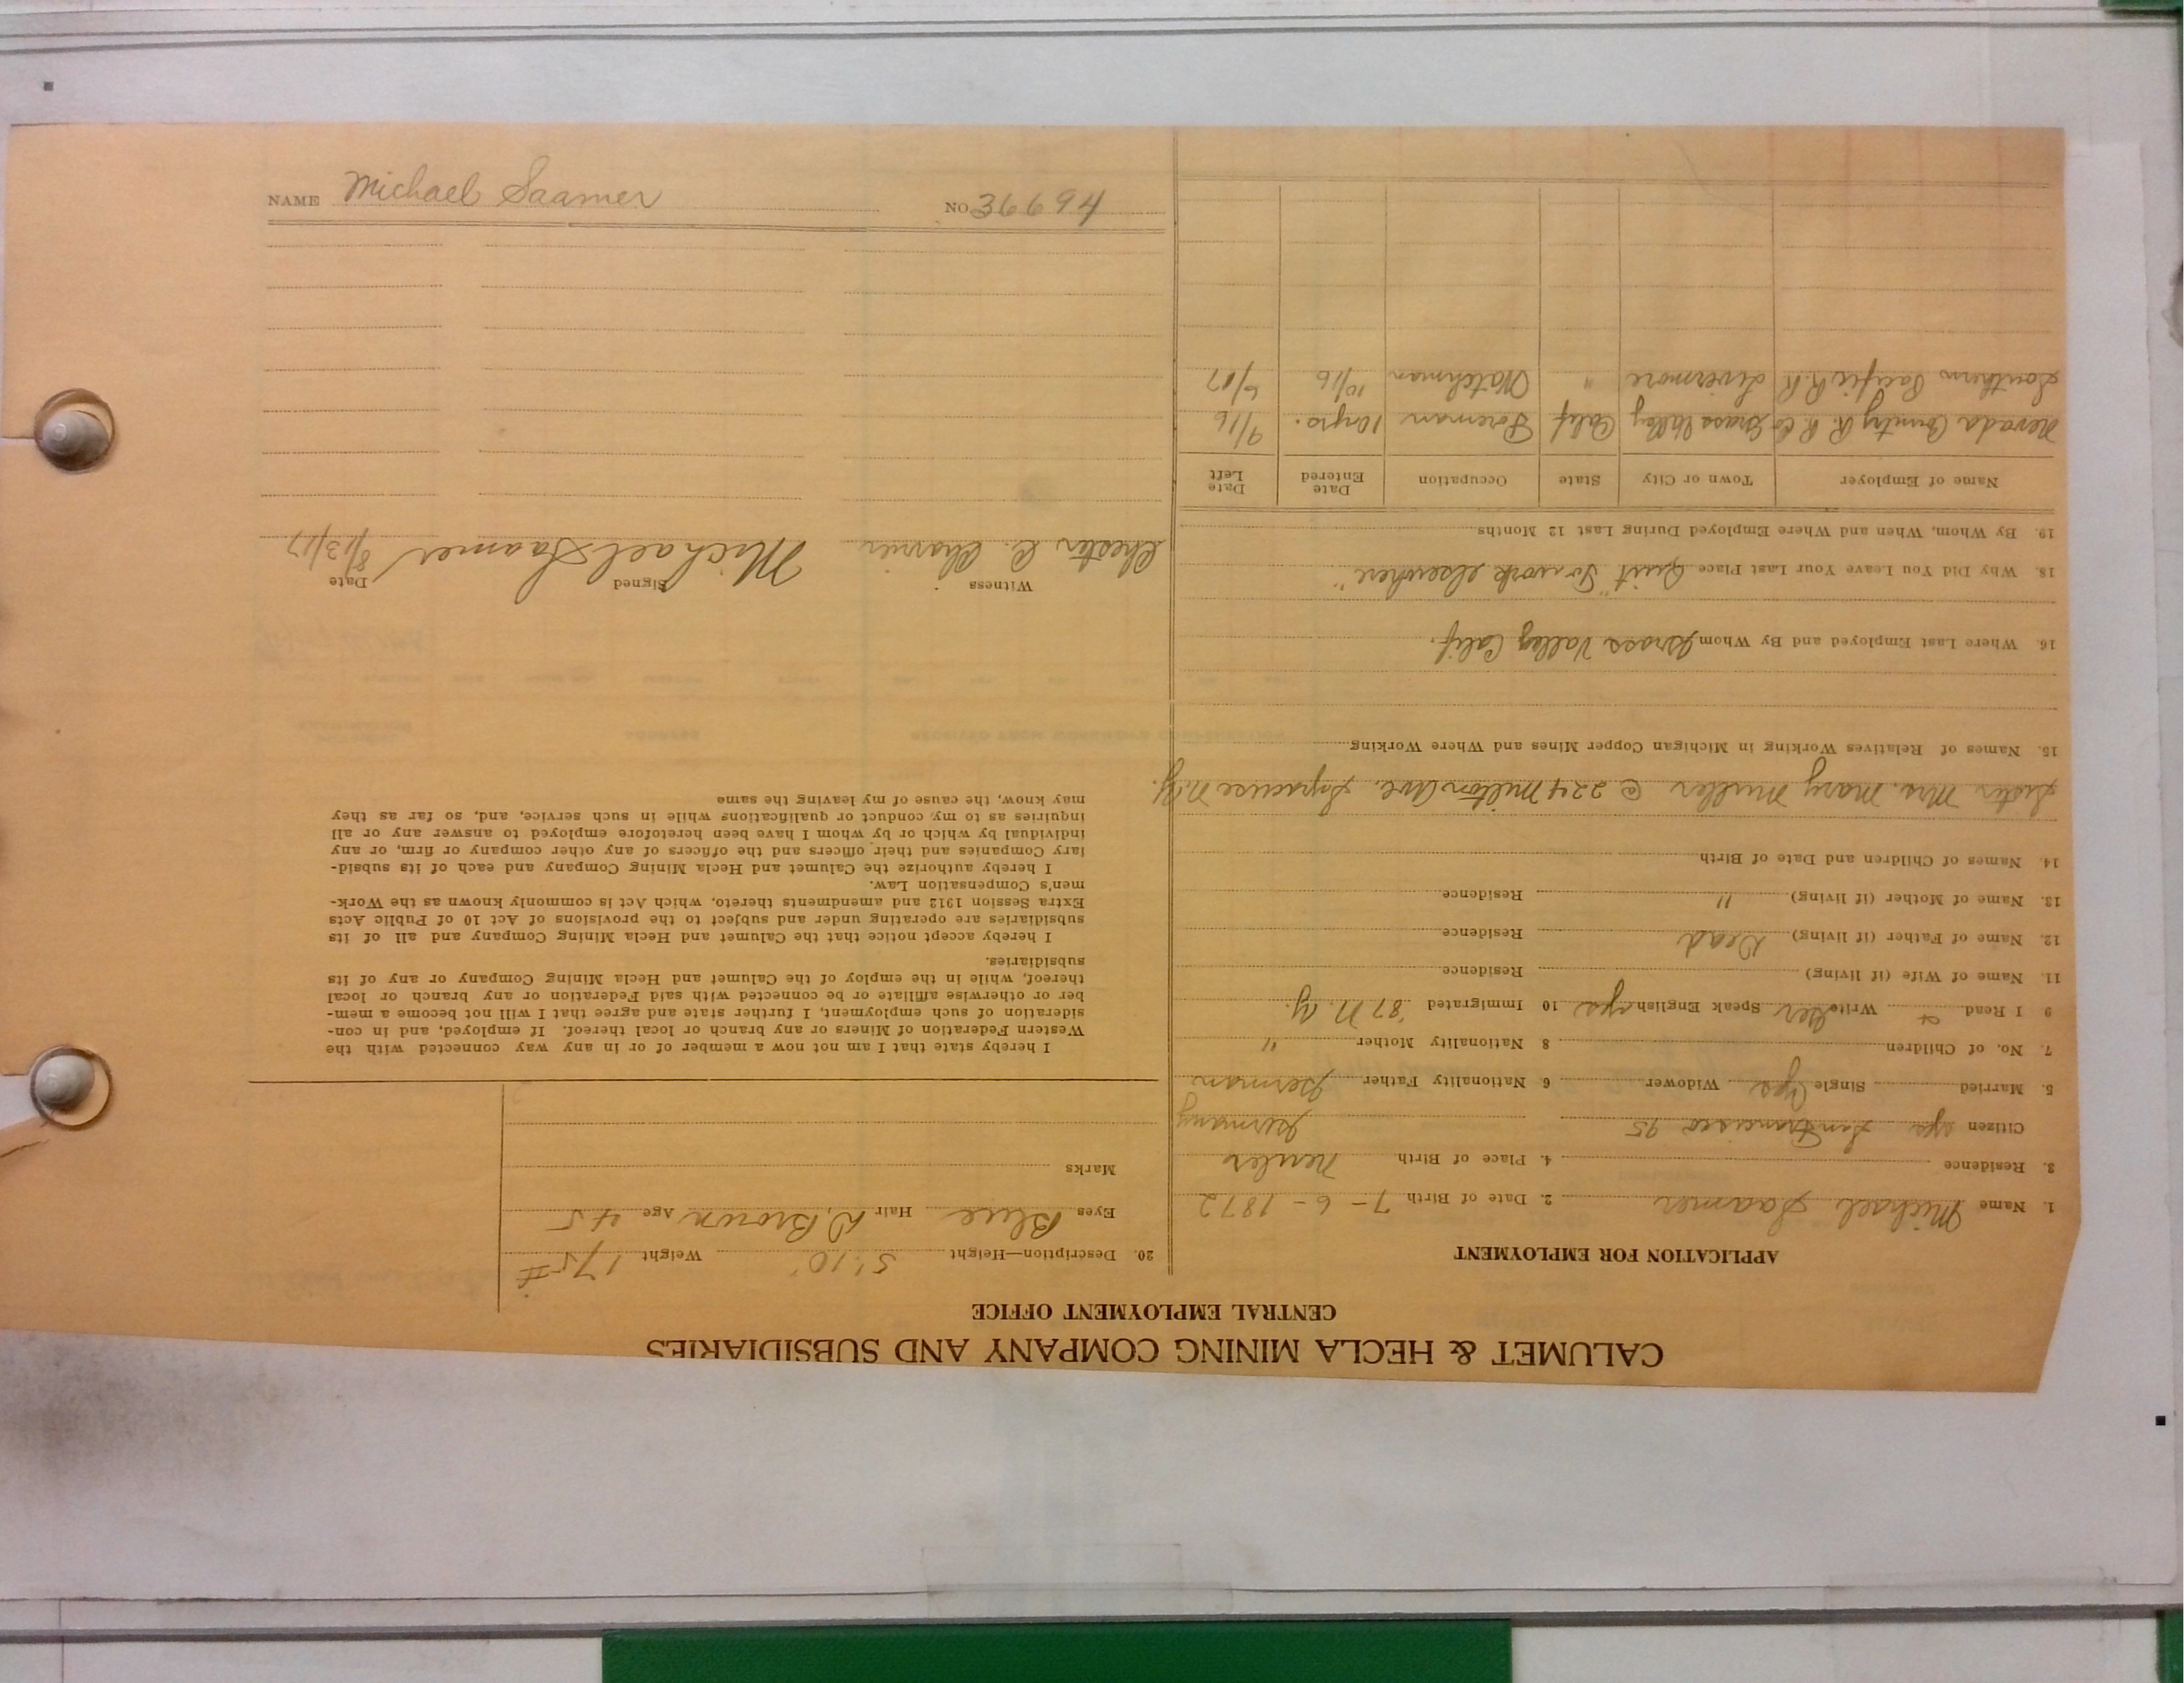 CALUMET & HECLA MINING COMPANY AND SUBSIDIARIES
CENTRAL EMPLOYMENT OFFICE
APPLICATION FOR EMPLOYMENT
1. Name Michael Saamer 2. Date of Birth 7-6-1872
3. Residence 4. Place of Birth
Citizen yes San Francisco 95 Germany
5. Married Single Yes Widower 6 Nationality Father German
7. No. of Children 8 Nationality Mother "
9 I Read Write Ger Speak English yes 10 Immigrated '87 N.Y.
11. Name of Wife (if living) Residence
12. Name of Father (if living) Dead Residence
13. Name of Mother (if living) " Residence
14. Names of Children and Date of Birth
Sister Mrs. Mary Muller @ 224 Milton Ave. Syracuse N.Y.
15. Names of Relatives Working in Michigan Copper Mines and Where Working
16. Where Last Employed and By Whom Grass Valley Calif.
18. Why Did You Leave Your Last Place Quit "To work elsewhere"
19. By Whom, When and Where Employed During Last 12 Months
Name of Employer Town or City State Occupation Date Entered Date Left
Nevada County R. R. Co Grass Valley Calif Foreman 10 yrs. 9/16
Southern Pacific R.R Livermore " Watchman 10/16 6/17
20. Description—Height 5'.10" Weight 175#
Eyes Blue Hair D. Brown Age 45
Marks
I hereby state that I am not now a member of or in any way connected with the
Western Federation of Miners or any branch or local thereof. If employed, and in con-
sideration of such employment, I further state and agree that I will not become a mem-
ber or otherwise affiliate or be connected with said Federation or any branch or local
thereof, while in the employ of the Calumet and Hecla Mining Company or any of its
subsidiaries.
I hereby accept notice that the Calumet and Hecla Mining Company and all of its
subsidiaries are operating under and subject to the provisions of Act 10 of Public Acts
Extra Session 1912 and amendments thereto, which Act is commonly known as the Work-
men's Compensation Law.
I hereby authorize the Calumet and Hecla Mining Company and each of its subsid-
iary Companies and their officers and the officers of any other company or firm, or any
individual by which or by whom I have been heretofore employed to answer any or all
inquiries as to my conduct or qualifications while in such service, and, so far as they
may know, the cause of my leaving the same
Witness Signed Date
Chester C. Michael Saamer 8/13/17
NAME Michael Saamer NO 36694